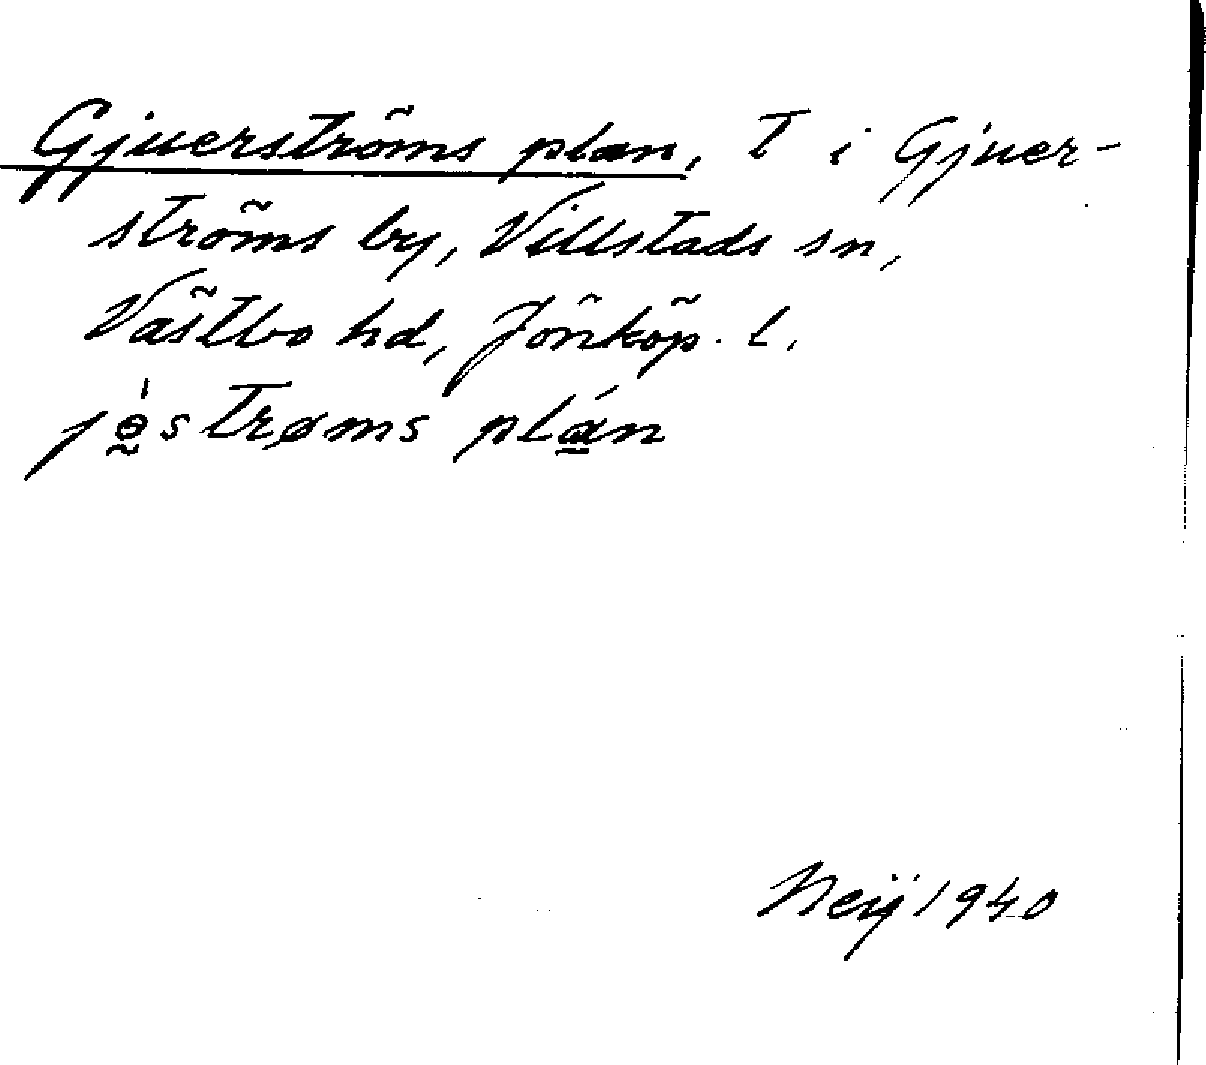 Gjuerströms plan, T i Gjuer-
ströms by, Villstads sn,
Västbo hd, Jönköp. l.
jɵ̰̍strøms plá̱n
Neij 1940